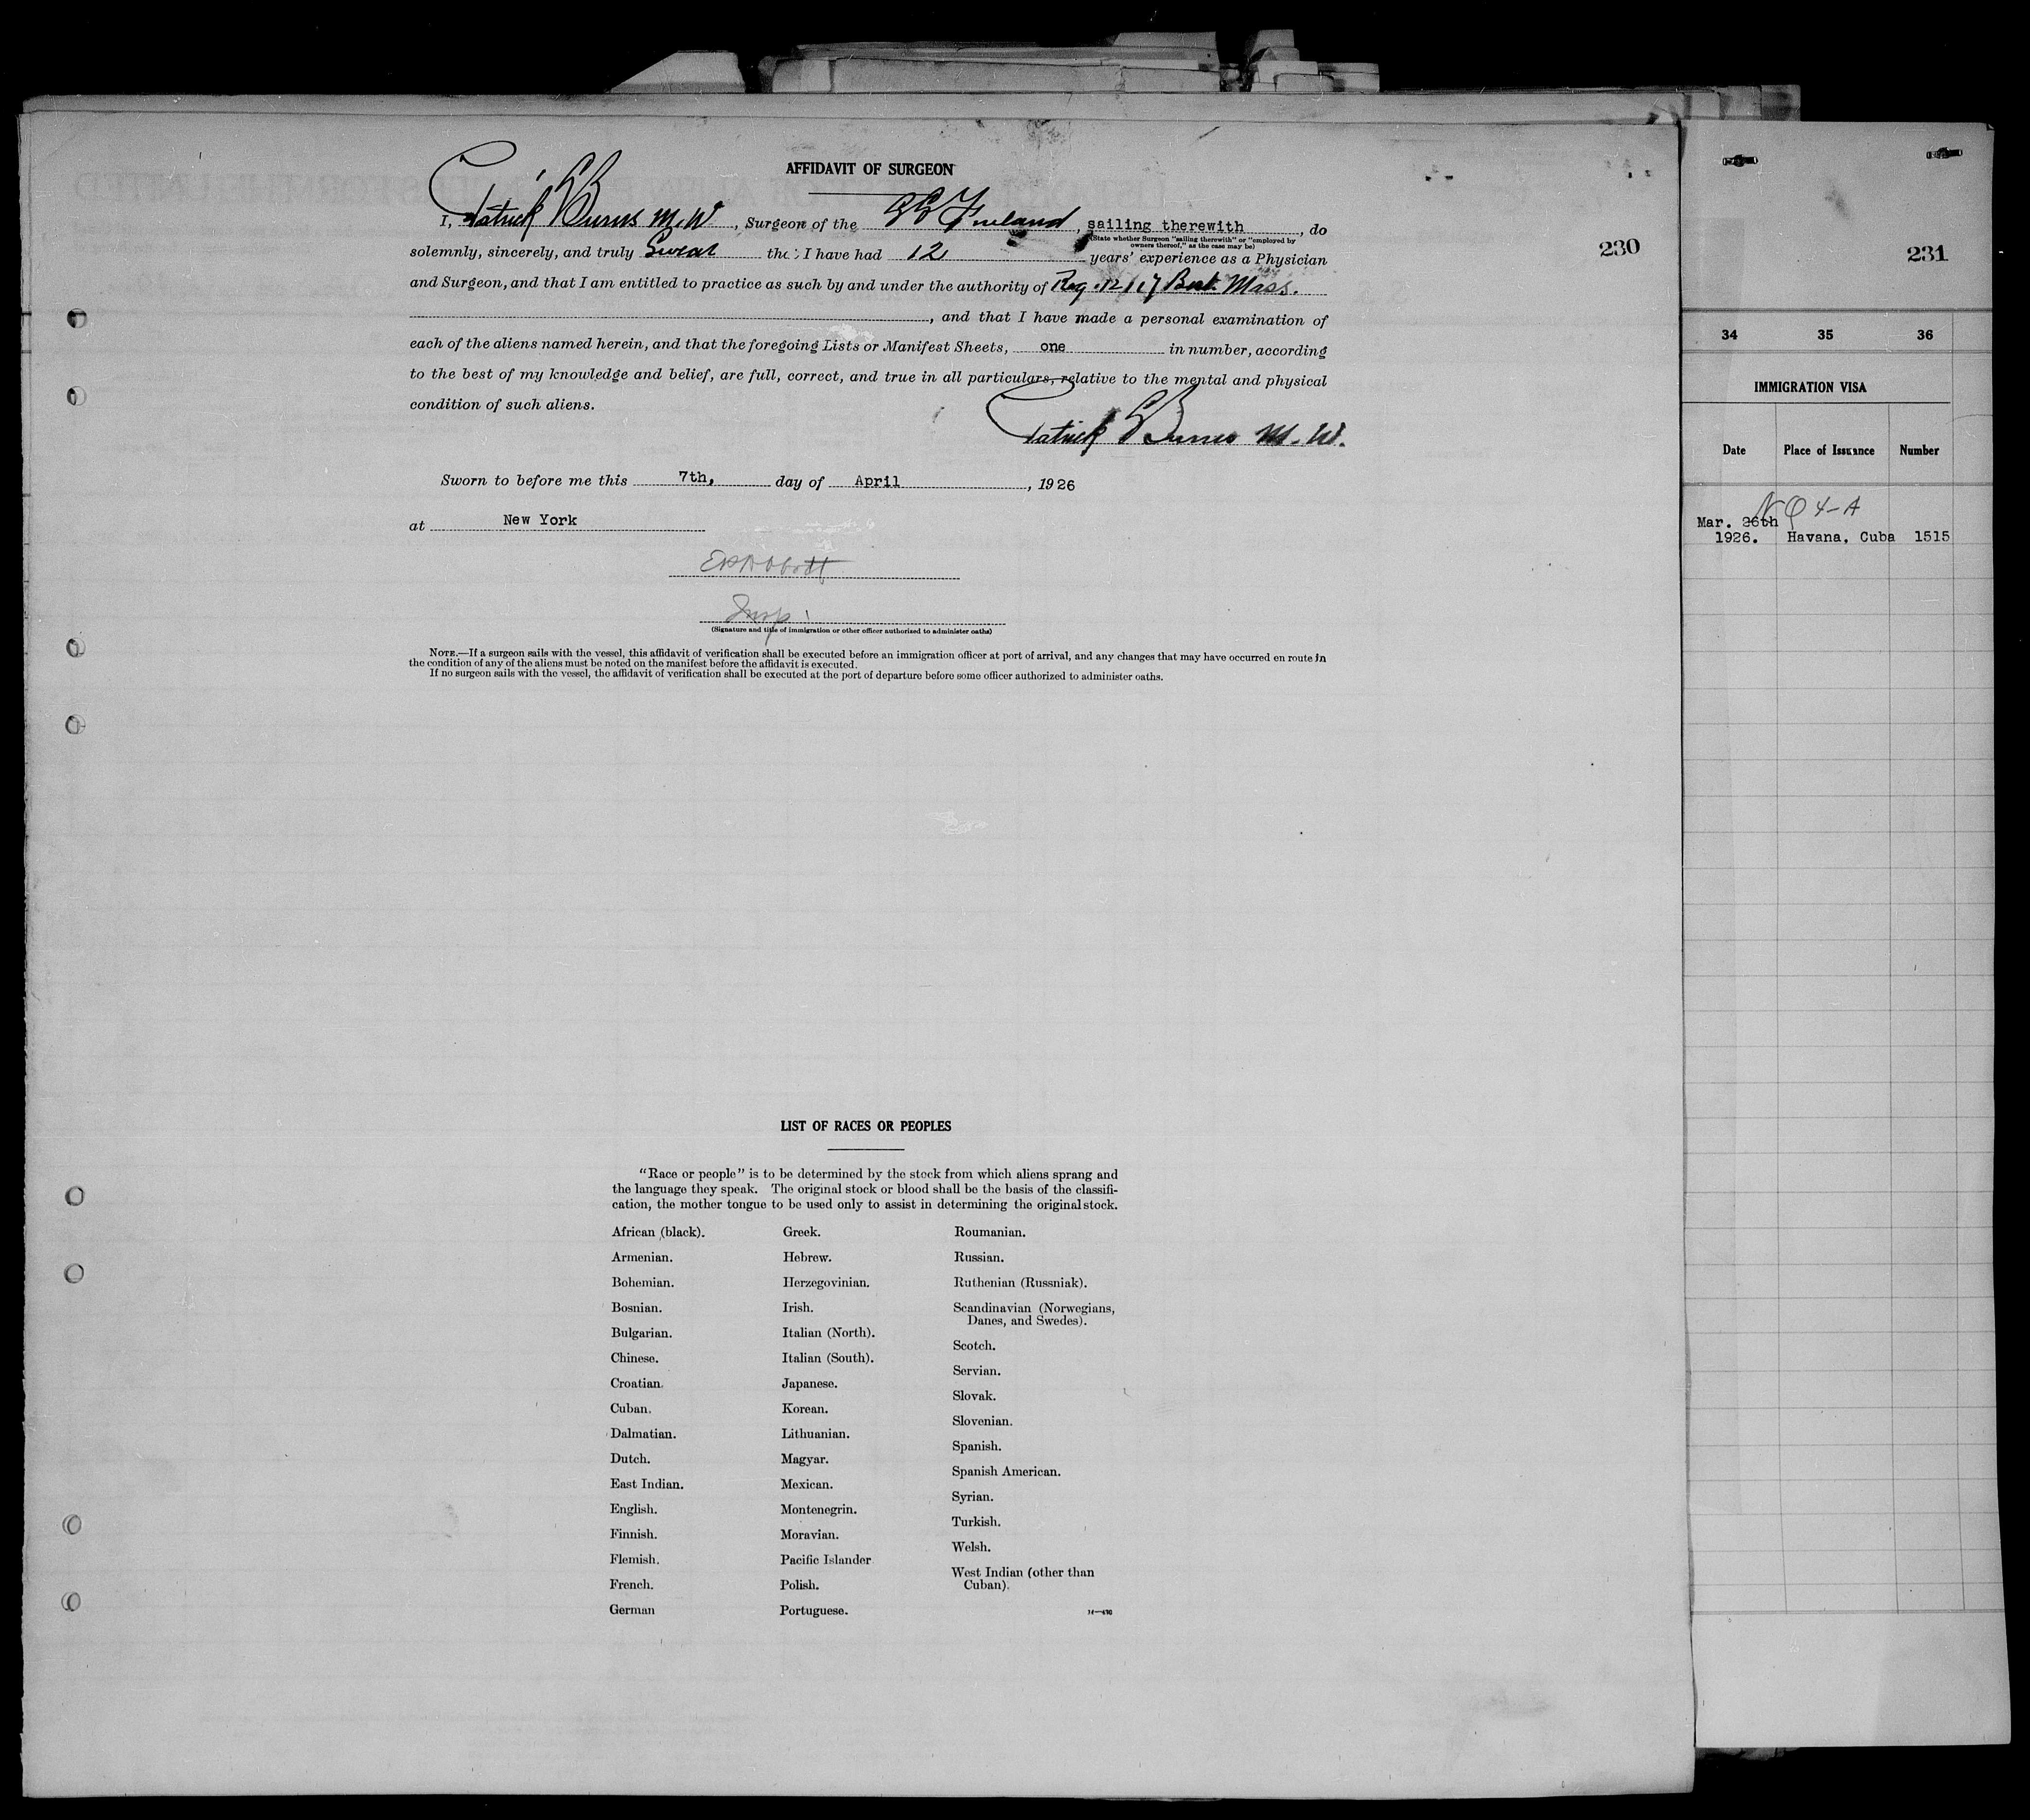 AFFIDAVIT OF SURGEON
I, Patrick S Burns M.D., Surgeon of the SS Finland, sailing therewith, do
(State whether Surgeon "sailing therewith" or "employed by
owners thereof," as the case may be)
solemnly, sincerely, and truly Swear that I have had 12 years' experience as a Physician
and Surgeon, and that I am entitled to practice as such by and under the authority of Reg. Mass.
, and that I have made a personal examination of
each of the aliens named herein, and that the foregoing Lists or Manifest Sheets, one in number, according
to the best of my knowledge and belief, are full, correct, and true in all particulars, relative to the mental and physical
condition of such aliens.
Patrick S Burns M.D.
Sworn to before me this 7th, day of April, 1926
at New York
Insp.
(Signature and title of immigration or other officer authorized to administer oaths)
NOTE.—If a surgeon sails with the vessel, this affidavit of verification shall be executed before an immigration officer at port of arrival, and any changes that may have occurred en route in
the condition of any of the aliens must be noted on the manifest before the affidavit is executed.
If no surgeon sails with the vessel, the affidavit of verification shall be executed at the port of departure before some officer authorized to administer oaths.
230
LIST OF RACES OR PEOPLES
"Race or people" is to be determined by the stock from which aliens sprang and
the language they speak. The original stock or blood shall be the basis of the classifi-
cation, the mother tongue to be used only to assist in determining the original stock.
African (black).
Armenian.
Bohemian.
Bosnian.
Bulgarian.
Chinese.
Croatian.
Cuban.
Dalmatian.
Dutch.
East Indian.
English.
Finnish.
Flemish.
French.
German
Greek.
Hebrew.
Herzegovinian.
Irish.
Italian (North).
Italian (South).
Japanese.
Korean.
Lithuanian.
Magyar.
Mexican.
Montenegrin.
Moravian.
Pacific Islander
Polish.
Portuguese.
Roumanian.
Russian.
Ruthenian (Russniak).
Scandinavian (Norwegians,
Danes, and Swedes).
Scotch.
Servian.
Slovak.
Slovenian.
Spanish.
Spanish American.
Syrian.
Turkish.
Welsh.
West Indian (other than
Cuban).
231
34 35 36
IMMIGRATION VISA
Date Place of Issuance Number
NQ 4-A
Mar. 26th
1926. Havana, Cuba 1515